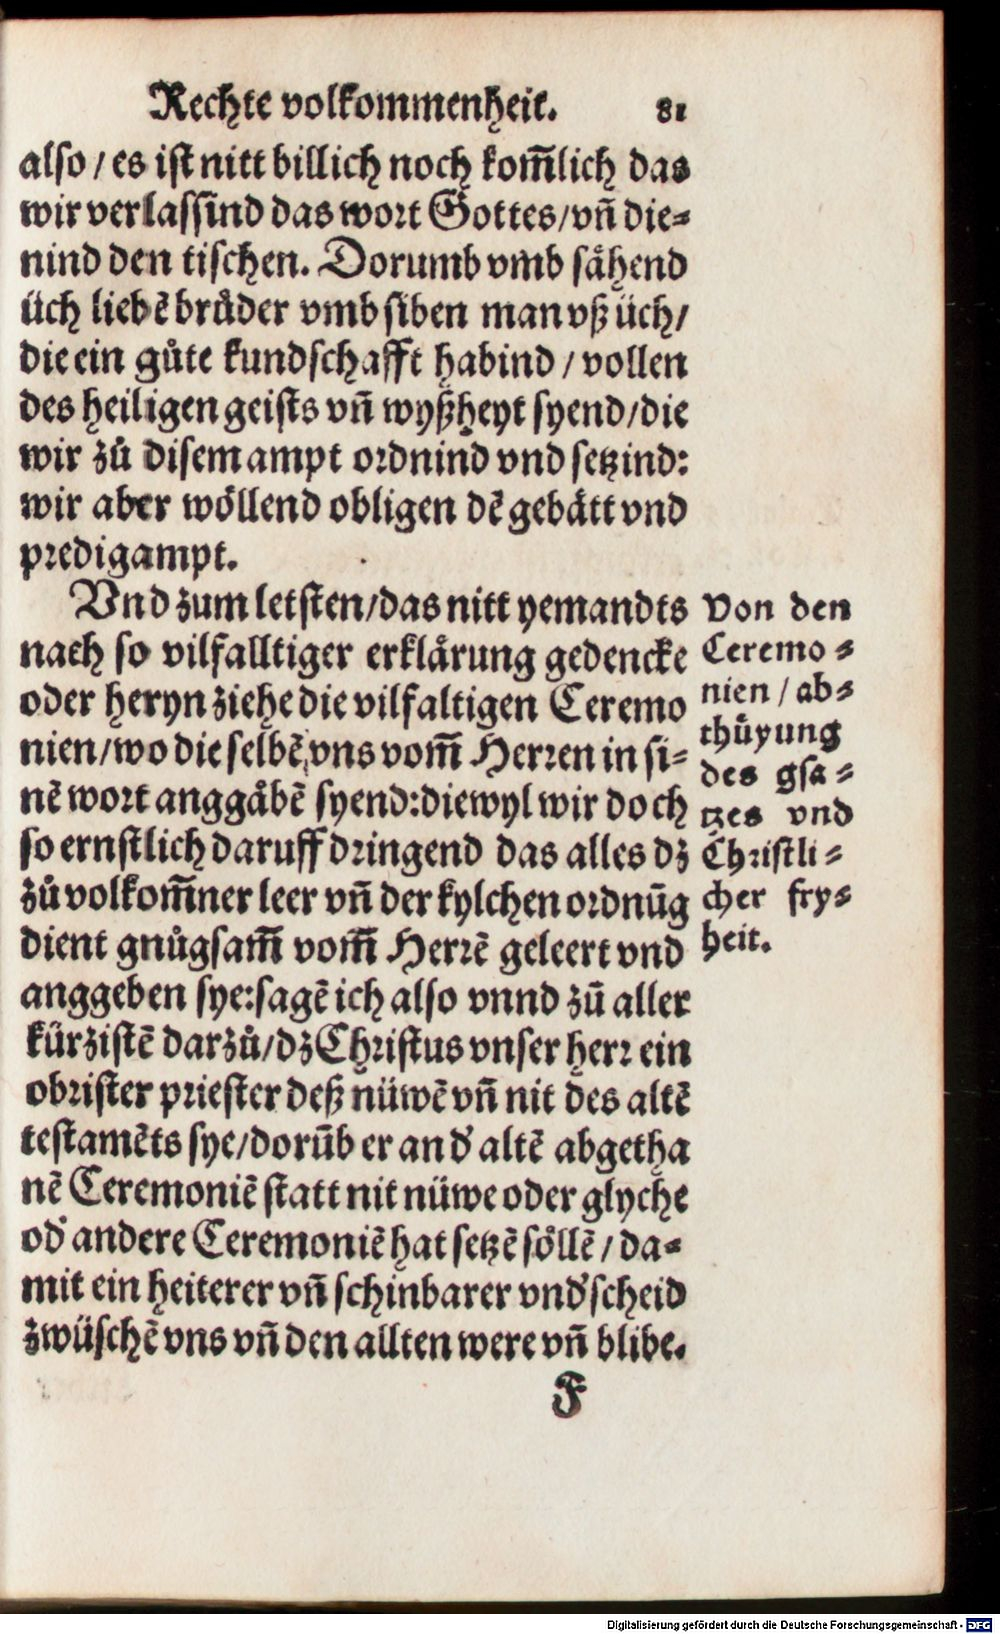 Rechte volkommenheit. 81
also / es ist nitt billich noch kom̃lich das
wir verlassind das wort Gottes / vn̄ die⸗
nind den tischen. Dorumb vmb sähend
üch liebē bruͤder vmb siben man vß üch /
die ein guͦte kundschafft habind / vollen
des heiligen geists vn̄ wyßheyt syend / die
wir zuͦ disem ampt ordnind vnd setzind:
wir aber wöllend obligen dē gebätt vnd
predigampt.
Vnd zum letsten / das nitt yemandts
nach so vilfalltiger erklärung gedencke
oder heryn ziehe die vilfaltigen Ceremo
nien / wo die selbē vns vom̃ Herren in si⸗
nē wort anggäbē syend: diewyl wir doch
so ernstlich daruff dringend das alles dz
zuͦ volkom̃ner leer vn̄ der kylchen ordnūg
dient gnuͦgsam̃ vom̃ Herrē geleert vnd
anggeben sye: sagē ich also vnnd zū aller
kürzistē darzuͦ / dz Christus vnser herr ein
obrister priester deß nüwē vn̄ nit des altē
testamēts sye / dorūb er an d' altē abgetha
nē Ceremoniē statt nit nüwe oder glyche
od' andere Ceremoniē hat setzē söllē / da⸗
mit ein heiterer vn̄ schinbarer vnd'scheid
zwüschē vns vn̄ den allten were vn̄ blibe.
F
Von den
Ceremo⸗
nien / ab⸗
thüyung
des gsa⸗
tzes vnd
Christli⸗
cher fry⸗
heit.
Digitalisierung gefördert durch die Deutsche Forschungsgemeinschaft - DFG